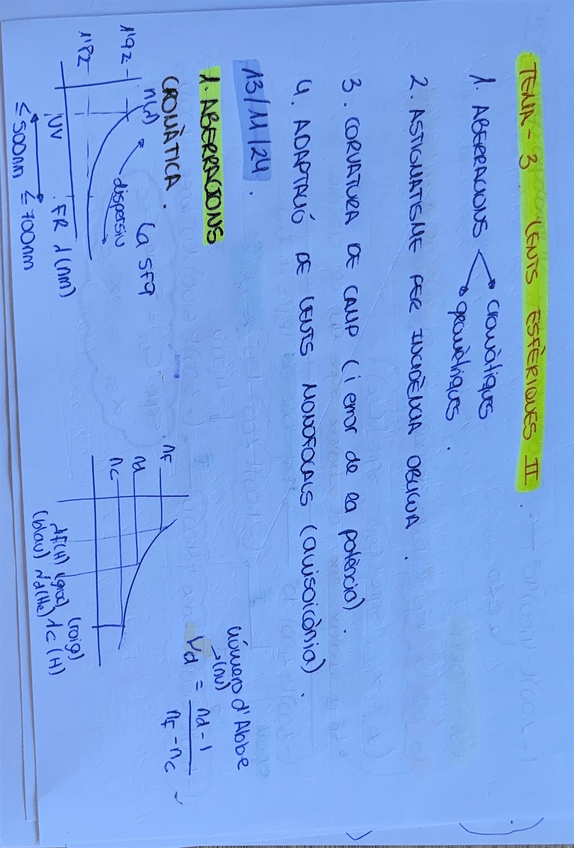 TEMA - 3 LENTS ESFÈRIQUES II.
1. ABERRACIONS
cromàtiques
geomètriques.
2. ASTIGMATISME PER INCIDÈNCIA OBLIQUA.
3. CORVATURA DE CAMP (i error de la potència).
4. ADAPTACIÓ DE LENTS MONOFOCALS (anisoicònia).
13/11/24.
1. ABERRACIONS
CROMÀTICA.
n(λ)
1'92
1'82
dispersiu
UV
FR λ(nm)
≤ 500nm ≤ 700nm
nF
nd
nc
λF(H) (groc) (roig)
(blau) λd(He) λc(H)
número d'Abbe
(nu)
Vd = nd - 1
nF - nc